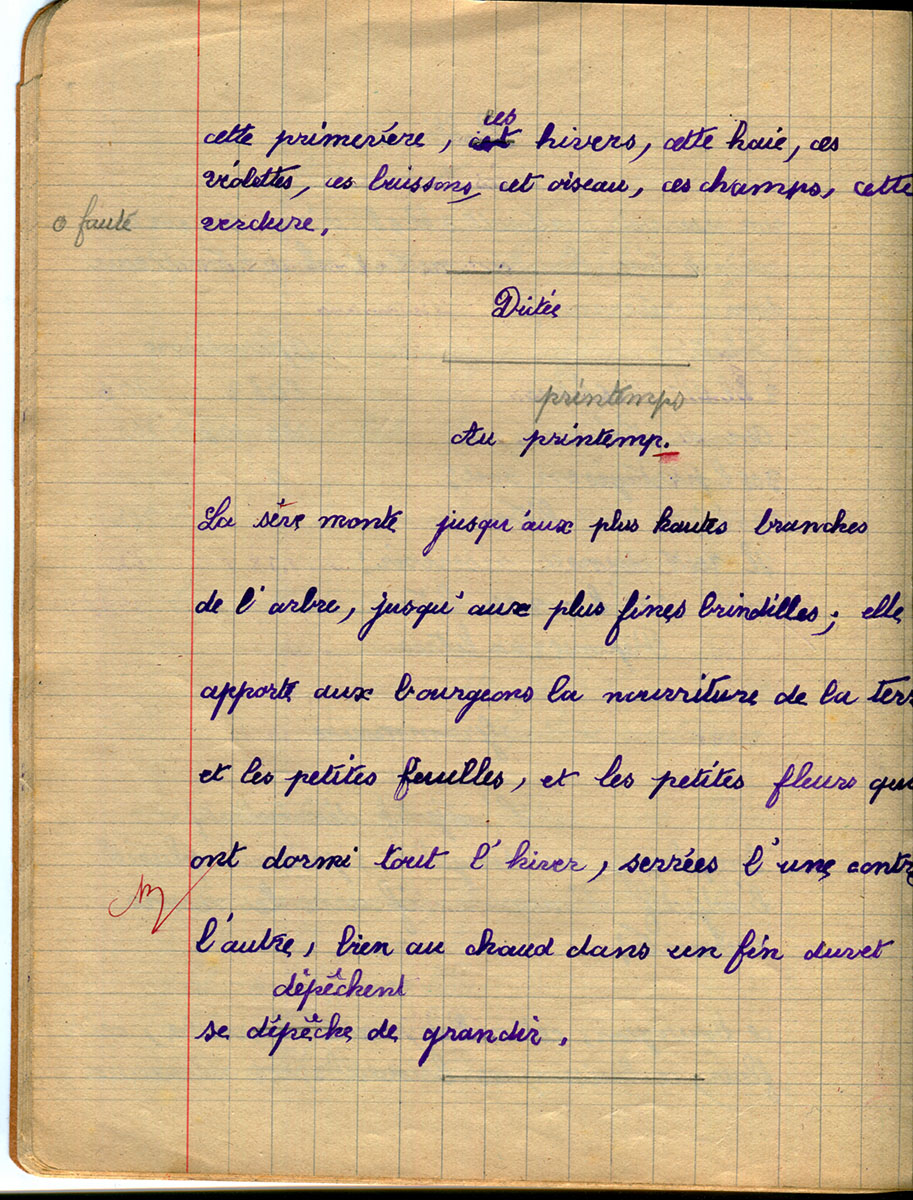 ces
cette primevère, cet hivers, cette haie, ces
violettes, ces buissons, cet oiseau, ces champs, cette
0 faute verdure.
Dictée
printemps
Au printemp.
La sève monte jusqu'aux plus hautes branches
de l'arbre, jusqu'aux plus fines brindilles; elle
apporte aux bourgeons la nourriture de la terr
et les petites feuilles, et les petites fleurs qui
ont dormi tout l'hiver, serrées l'une contre
l'autre, bien au chaud dans un fin duvet
dépêchent
se dépêche de grandir.